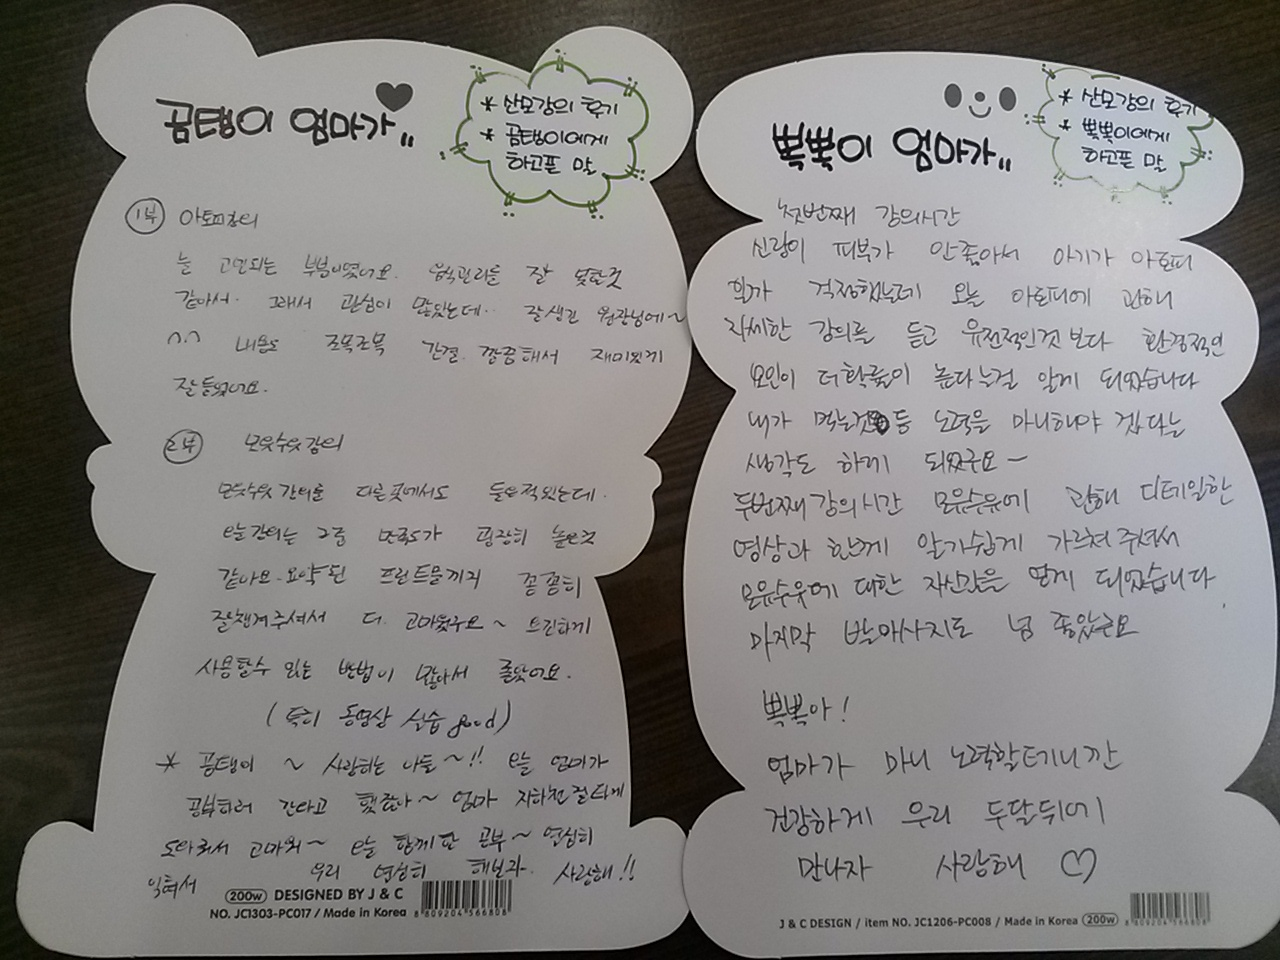 곰탱이 엄마가,,
* 산모강의 후기
* 곰탱이에게
하고픈 말
1부 아토피강의
늘 고민되는 부분이였어요. 음식관리를 잘 못할것
같아서. 그래서 관심이 많았는데.. 잘생긴 원장님에~
^^ 내용도 조목조목 간결. 깔끔해서 재미있게
잘들었어요.
2부 모유수유강의
모유수유 강의를 다른곳에서도 들은적있는데.
오늘강의는 그중 만족도가 굉장히 높은것
같아요. 요약된 프린트물까지 꼼꼼히
잘챙겨주셔서 더 고마웠구요~ 트진하게
사용할수 있는 방법이 많아서 좋았어요.
(특히 동영상 실습 good)
* 곰탱이 ~ 사랑하는 아들~!! 오늘 엄마가
공부하러 간다고 했잖아~ 엄마 지하철 잘타게
도와줘서 고마워~ 오늘 함께한 공부~ 열심히
익혀서 우리 열심히 해보자. 사랑해!!
200w DESIGNED BY J & C
NO. JC1303-PC017 / Made in Korea
8 809204 566808
뽁뽁이 엄마가,,
* 산모강의 후기
* 뽁뽁이에게
하고픈 말
첫번째 강의시간
신랑이 피부가 안좋아서 아기가 아토피
일까 걱정했는데 오늘 아토피에 관해
자세한 강의를 듣고 유전적인것 보다 환경적인
요인이 더확률이 높다는걸 알게 되었습니다
내가 먹는것 등 노력을 마니해야 겠다는
생각도 하게 되었구요~
두번째강의시간 모유수유에 관해 디테일한
영상과 함께 알기쉽게 가르쳐주셔서
모유수유에 대한 자신감을 얻게 되었습니다.
마지막 발마사지도 넘 좋았군요
뽁뽁아!
엄마가 마니 노력할테니깐
건강하게 우리 두달뒤에
만나자 사랑해 ♡
J & C DESIGN / item NO. JC1206-PC008 / Made in Korea 200w
8 809204 566808